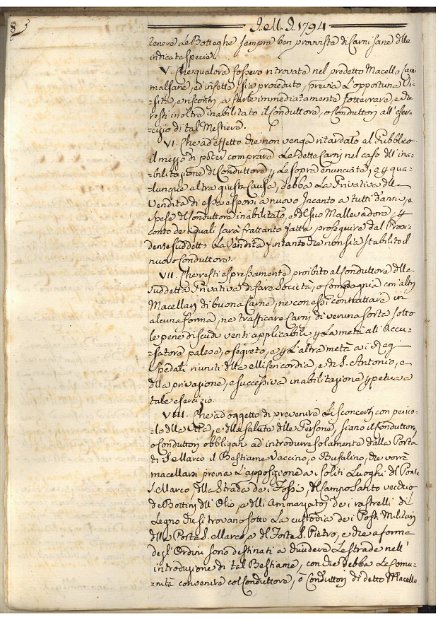 8
J. M. J. 1794
tenere le Botteghe sempre ben provviste di Carni sane delle
indicate specie.
V. Che qualora fossero introvate nel predetto Macello Carni
malsane, ed infette sia proceduto, previa l'opportuna
e a farle immediatamente sotterrare, e
resti inoltre inabilitato il conduttore, o conduttori all'eser-
cizio di tal Mestiere.
VI. Che ad effetto che non venga ritardato al Pubblico
il mezzo di poter comprare le dette Carni nel caso dell'ina-
bilitazione del Conduttore p. le sopra enunciate, e p. qua-
lunque altra giusta Causa, debba la Privativa della
Vendita di esse esporsi a nuovo Incanto a tutti danni, e
spese del conduttore inabilitato, e del suo Mallevadore, p.
conto de quali sarà frattanto fatta proseguire dal Provv-
suddetto la Vendita p. intanto che non sia stabilito il
nuovo conduttore.
VII. Che resti espressamente proibito al conduttore della
suddetta Privativa di fare Società, o compagnia con altri
Macellari di buona Carne, ne con essi contrattare in
alcuna forma, ne trafficare Carni di veruna sorte sotto
le pene di scudi venti applicabile p. la metà all'Accu-
satore palese, o segreto, e p. l'altra metà a i due
Spedali riuniti della Misericordia, e di S. Antonio, e
della privazione, e successiva inabilitazione p. sempre a
tale esercizio.
VIII. Che ad oggetto di prevenire li sconcerti con perico-
lo delle Vite, e della salute delle Persone, siano il conduttore,
o conduttori obbligati ad introdurre solamente dalla Porta
di S. Marco il Bestiame Vaccino, o Bufalino, che vorrà
macellarsi previa l'apposizione a i soliti Luoghi di Porta
S. Marco della Strada de i Fossi, del Campo Santo vecchio
de Bottini dell'Olio, e degli Ammazzatoj de i rastrelli di
Legno che si trovano sotto la custodia de i Posti Militari
della Porta S. Marco, e di Forte S. Pietro, e che a forma
degl'Ordini sono destinati a dividere le strade nell'
introduzione di tal Bestiame, con che debba la Comu-
nità convenire col conduttore, o conduttori di detto Macello